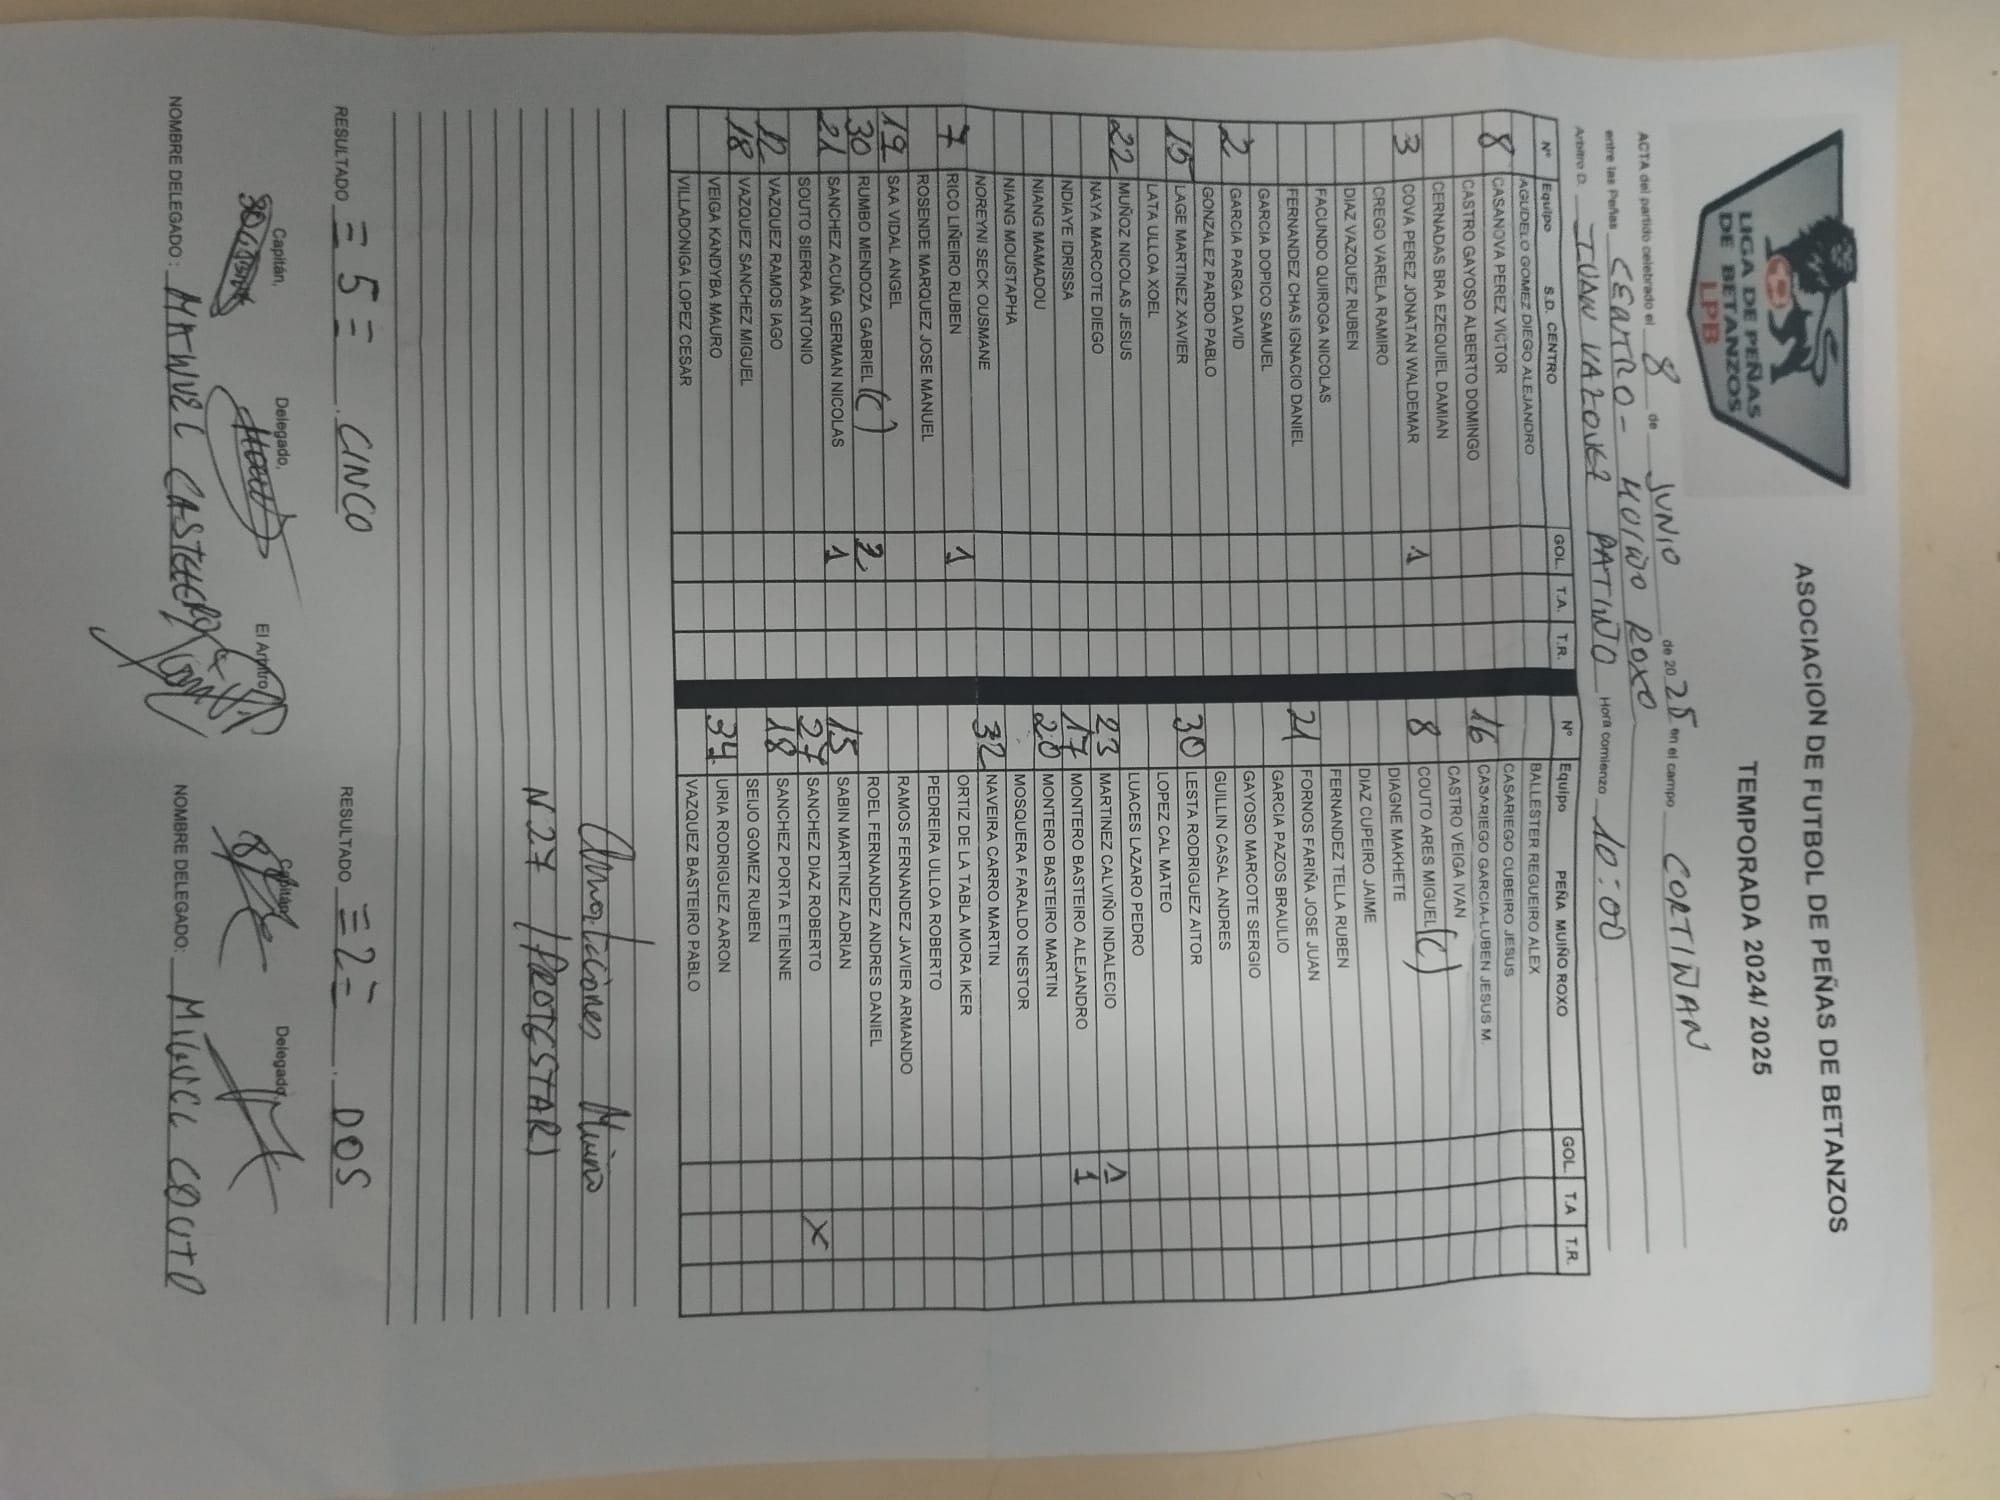 LIGA DE PEÑAS
DE BETANZOS
LPB
ASOCIACION DE FUTBOL DE PEÑAS DE BETANZOS
TEMPORADA 2024/ 2025
ACTA del partido celebrado el 8 de JUNIO de 2025 en el campo CORTIÑAN
entre las Peñas CENTRO - MUIÑO ROXO
Arbitro D. IVAN VAZQUEZ PATIÑO Hora comienzo 10:00
Nº Equipo S.D. CENTRO GOL. T.A. T.R. Nº Equipo PEÑA MUIÑO ROXO GOL. T.A T.R.
AGUDELO GOMEZ DIEGO ALEJANDRO BALLESTER REGUEIRO ALEX
8 CASANOVA PEREZ VICTOR CASARIEGO CUBEIRO JESUS
CASTRO GAYOSO ALBERTO DOMINGO 16 CASARIEGO GARCIA-LUBEN JESUS M.
CERNADAS BRA EZEQUIEL DAMIAN CASTRO VEIGA IVAN
3 COVA PEREZ JONATAN WALDEMAR 1 8 COUTO ARES MIGUEL (C)
CREGO VARELA RAMIRO DIAGNE MAKHETE
DIAZ VAZQUEZ RUBEN DIAZ CUPEIRO JAIME
FACUNDO QUIROGA NICOLAS FERNANDEZ TELLA RUBEN
FERNANDEZ CHAS IGNACIO DANIEL 21 FORNOS FARIÑA JOSE JUAN
GARCIA DOPICO SAMUEL GARCIA PAZOS BRAULIO
2 GARCIA PARGA DAVID GAYOSO MARCOTE SERGIO
GONZALEZ PARDO PABLO GUILLIN CASAL ANDRES
15 LAGE MARTINEZ XAVIER 30 LESTA RODRIGUEZ AITOR
LATA ULLOA XOEL LOPEZ CAL MATEO
22 MUÑOZ NICOLAS JESUS LUACES LAZARO PEDRO
NAYA MARCOTE DIEGO 23 MARTINEZ CALVIÑO INDALECIO 1
NDIAYE IDRISSA 17 MONTERO BASTEIRO ALEJANDRO 1
NIANG MAMADOU 20 MONTERO BASTEIRO MARTIN
NIANG MOUSTAPHA MOSQUERA FARALDO NESTOR
NOREYNI SECK OUSMANE 32 NAVEIRA CARRO MARTIN
7 RICO LIÑEIRO RUBEN 1 ORTIZ DE LA TABLA MORA IKER
ROSENDE MARQUEZ JOSE MANUEL PEDREIRA ULLOA ROBERTO
19 SAA VIDAL ANGEL RAMOS FERNANDEZ JAVIER ARMANDO
30 RUMBO MENDOZA GABRIEL (C) 2 ROEL FERNANDEZ ANDRES DANIEL
21 SANCHEZ ACUÑA GERMAN NICOLAS 1 15 SABIN MARTINEZ ADRIAN
SOUTO SIERRA ANTONIO 27 SANCHEZ DIAZ ROBERTO X
12 VAZQUEZ RAMOS IAGO 18 SANCHEZ PORTA ETIENNE
18 VAZQUEZ SANCHEZ MIGUEL SEIJO GOMEZ RUBEN
VEIGA KANDYBA MAURO 34 URIA RODRIGUEZ AARON
VILLADONIGA LOPEZ CESAR VAZQUEZ BASTEIRO PABLO
Amonestaciones Muiño
N 27 (PROTESTAR)
RESULTADO = 5 = . CINCO RESULTADO = 2 = . DOS
Capitán, Delegado, El Arbitro Capitán, Delegado,
NOMBRE DELEGADO: MANUEL CASTELO NOMBRE DELEGADO: MIGUEL COUTO